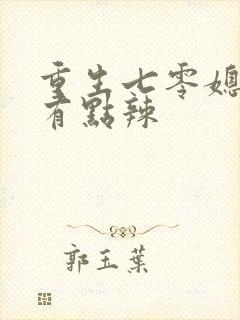 重生七零媳
有點辣
郭玉葉